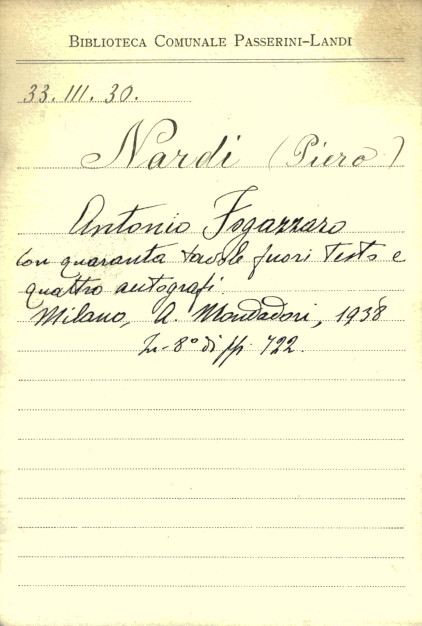 BIBLIOTECA COMUNALE PASSERINI-LANDI
33. III. 30.
Nardi (Piero)
Antonio Fogazzaro
Con quaranta tavole fuori testo e
quattro autografi.
Milano, A. Mondadori, 1938
In-8° di pp. 722.